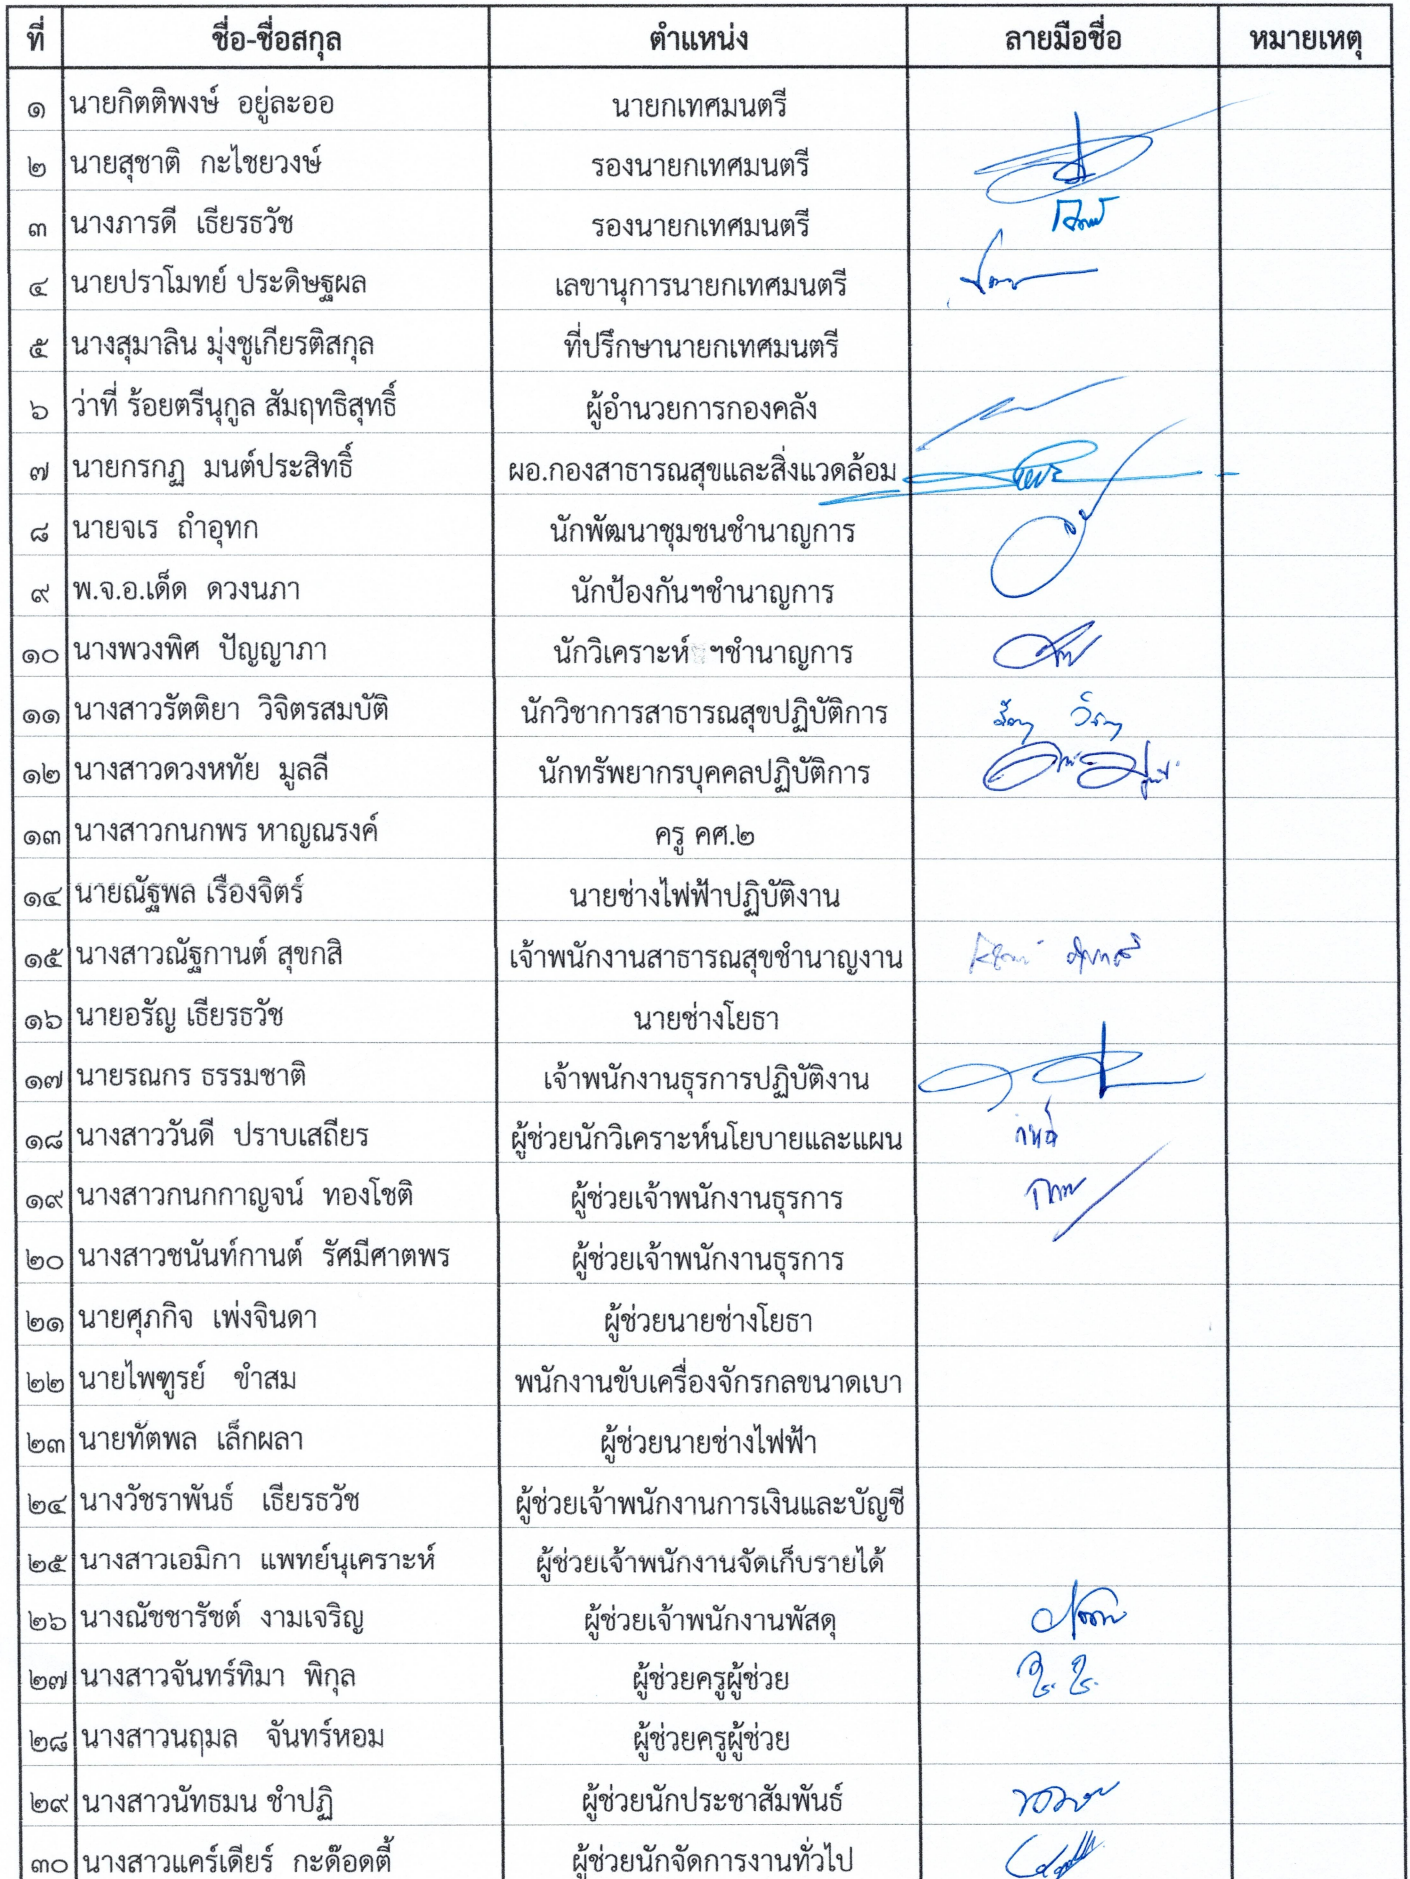 ที่ ชื่อ-ชื่อสกุล ตำแหน่ง ลายมือชื่อ หมายเหตุ
๑ นายกิตติพงษ์ อยู่ละออ นายกเทศมนตรี
๒ นายสุชาติ กะไชยวงษ์ รองนายกเทศมนตรี
๓ นางภารดี เธียรธวัช รองนายกเทศมนตรี
๔ นายปราโมทย์ ประดิษฐผล เลขานุการนายกเทศมนตรี
๕ นางสุมาลิน มุ่งชูเกียรติสกุล ที่ปรึกษานายกเทศมนตรี
๖ ว่าที่ ร้อยตรีนุกูล สัมฤทธิสุทธิ์ ผู้อำนวยการกองคลัง
๗ นายกรกฏ มนต์ประสิทธิ์ ผอ.กองสาธารณสุขและสิ่งแวดล้อม
๘ นายจเร ถ้ำอุทก นักพัฒนาชุมชนชำนาญการ
๙ พ.จ.อ.เด็ด ดวงนภา นักป้องกันฯชำนาญการ
๑๐ นางพวงพิศ ปัญญาภา นักวิเคราะห์ ฯชำนาญการ
๑๑ นางสาวรัตติยา วิจิตรสมบัติ นักวิชาการสาธารณสุขปฏิบัติการ
๑๒ นางสาวดวงหทัย มูลลี นักทรัพยากรบุคคลปฏิบัติการ
๑๓ นางสาวกนกพร หาญณรงค์ ครู คศ.๒
๑๔ นายณัฐพล เรืองจิตร์ นายช่างไฟฟ้าปฏิบัติงาน
๑๕ นางสาวณัฐกานต์ สุขกสิ เจ้าพนักงานสาธารณสุขชำนาญงาน
๑๖ นายอรัญ เธียรธวัช นายช่างโยธา
๑๗ นายรณกร ธรรมชาติ เจ้าพนักงานธุรการปฏิบัติงาน
๑๘ นางสาววันดี ปราบเสถียร ผู้ช่วยนักวิเคราะห์นโยบายและแผน
๑๙ นางสาวกนกกาญจน์ ทองโชติ ผู้ช่วยเจ้าพนักงานธุรการ
๒๐ นางสาวชนันท์กานต์ รัศมีศาตพร ผู้ช่วยเจ้าพนักงานธุรการ
๒๑ นายศุภกิจ เพ่งจินดา ผู้ช่วยนายช่างโยธา
๒๒ นายไพฑูรย์ ขำสม พนักงานขับเครื่องจักรกลขนาดเบา
๒๓ นายทัตพล เล็กผลา ผู้ช่วยนายช่างไฟฟ้า
๒๔ นางวัชราพันธ์ เธียรธวัช ผู้ช่วยเจ้าพนักงานการเงินและบัญชี
๒๕ นางสาวเอมิกา แพทย์นุเคราะห์ ผู้ช่วยเจ้าพนักงานจัดเก็บรายได้
๒๖ นางณัชชารัชต์ งามเจริญ ผู้ช่วยเจ้าพนักงานพัสดุ
๒๗ นางสาวจันทร์ทิมา พิกุล ผู้ช่วยครูผู้ช่วย
๒๘ นางสาวนฤมล จันทร์หอม ผู้ช่วยครูผู้ช่วย
๒๙ นางสาวนัทธมน ชำปฏิ ผู้ช่วยนักประชาสัมพันธ์
๓๐ นางสาวแคร์เดียร์ กะด๊อดตี้ ผู้ช่วยนักจัดการงานทั่วไป